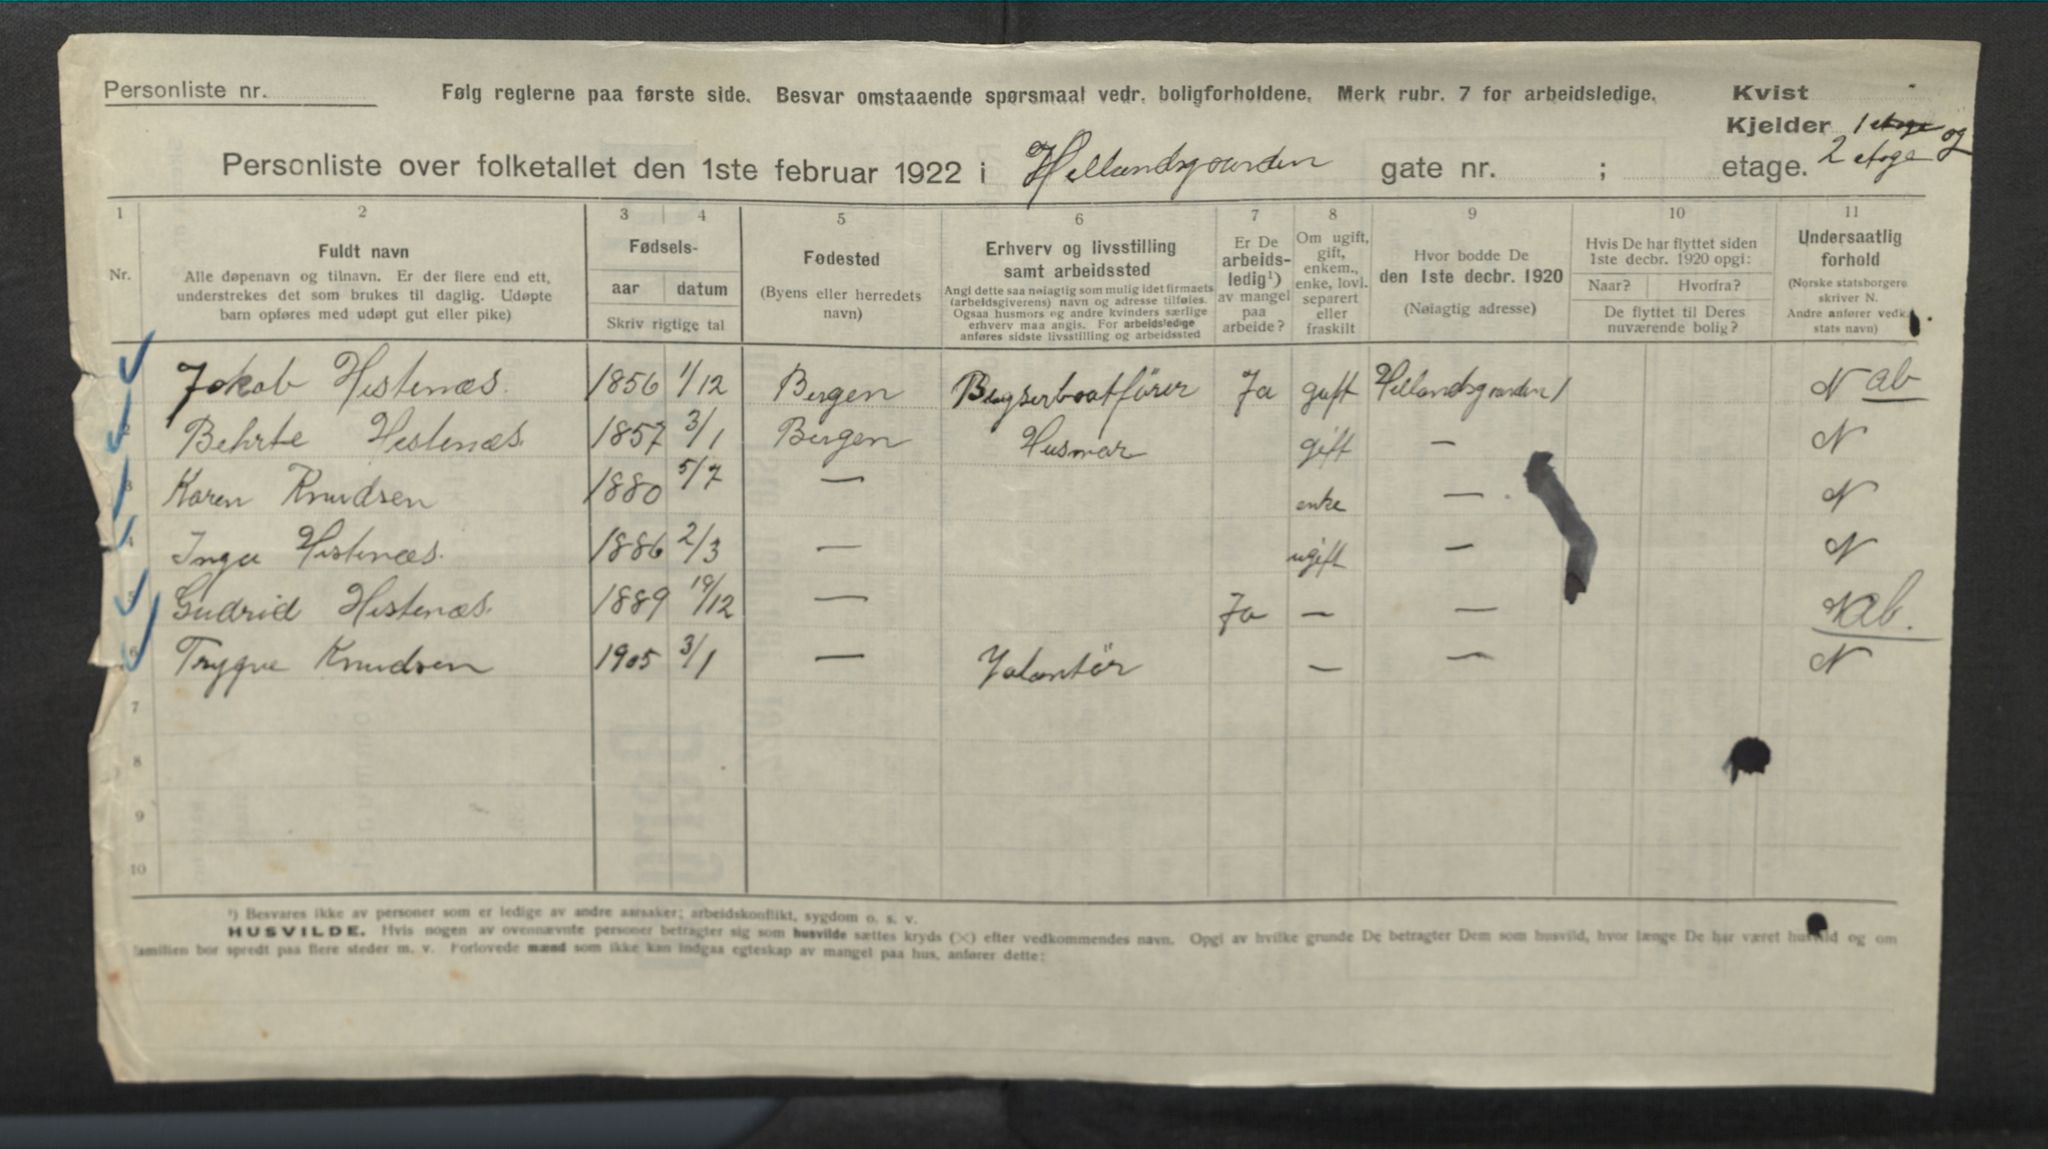 Personliste nr.
Følg reglerne paa første side. Besvar omstaaende spørsmaal vedr. boligforholdene. Merk rubr. 7 for arbeidsledige.
Kvist
Kjelder 1 etage og
Personliste over folketallet den 1ste februar 1922 i Hellandsgaarden gate nr. ; etage. 2 etage
1 2 3 4 5 6 7 8 9 10 11
Nr.
Fuldt navn
Alle døpenavn og tilnavn. Er der flere end ett,
understrekes det som brukes til daglig. Udøpte
barn opføres med udøpt gut eller pike)
Fødsels-
aar datum
Skriv rigtige tal
Fødested
(Byens eller herredets
navn)
Erhverv og livsstilling
samt arbeidssted
Angi dette saa nøiagtig som mulig idet firmaets
(arbeidsgiverens) navn og adresse tilføies.
Ogsaa husmors og andre kvinders særlige
erhverv maa angis. For arbeidsledige
anføres sidste livsstilling og arbeidssted
Er De
arbeids-
ledig¹)
av mangel
paa
arbeide?
Om ugift,
gift,
enkem.,
enke, lovl.
separert
eller
fraskilt
Hvor bodde De
den 1ste decbr. 1920
(Nøiagtig adresse)
Hvis De har flyttet siden
1ste decbr. 1920 opgi:
Naar? Hvorfra?
De flyttet til Deres
nuværende bolig?
Undersaatlig
forhold
(Norske statsborgere
skriver N.
Andre anfører vedk.
stats navn)
Jakob Histenæs. 1856 1/12 Bergen Bugserbaatfører Ja gift Hellandsgaarden 1 N ab
2 Behrte Histenæs. 1857 3/1 Bergen Husmor gift — N
3 Karen Knudsen 1880 5/7 — enke — N
4 Inga Histenæs. 1886 2/3 — ugift — N
5 Gudrid Histenæs. 1889 19/12 — Ja — — N ab.
6 Trygve Knudsen 1905 3/1 — Volontør — — N
7
8
9
10
¹) Besvares ikke av personer som er ledige av andre aarsaker; arbeidskonflikt, sygdom o. s. v.
HUSVILDE. Hvis nogen av ovennævnte personer betragter sig som husvilde sættes kryds (×) efter vedkommendes navn. Opgi av hvilke grunde De betragter Dem som husvild, hvor længe De har været husvild og om
familien bor spredt paa flere steder m. v. Forlovede mænd som ikke kan indgaa egteskap av mangel paa hus, anfører dette: